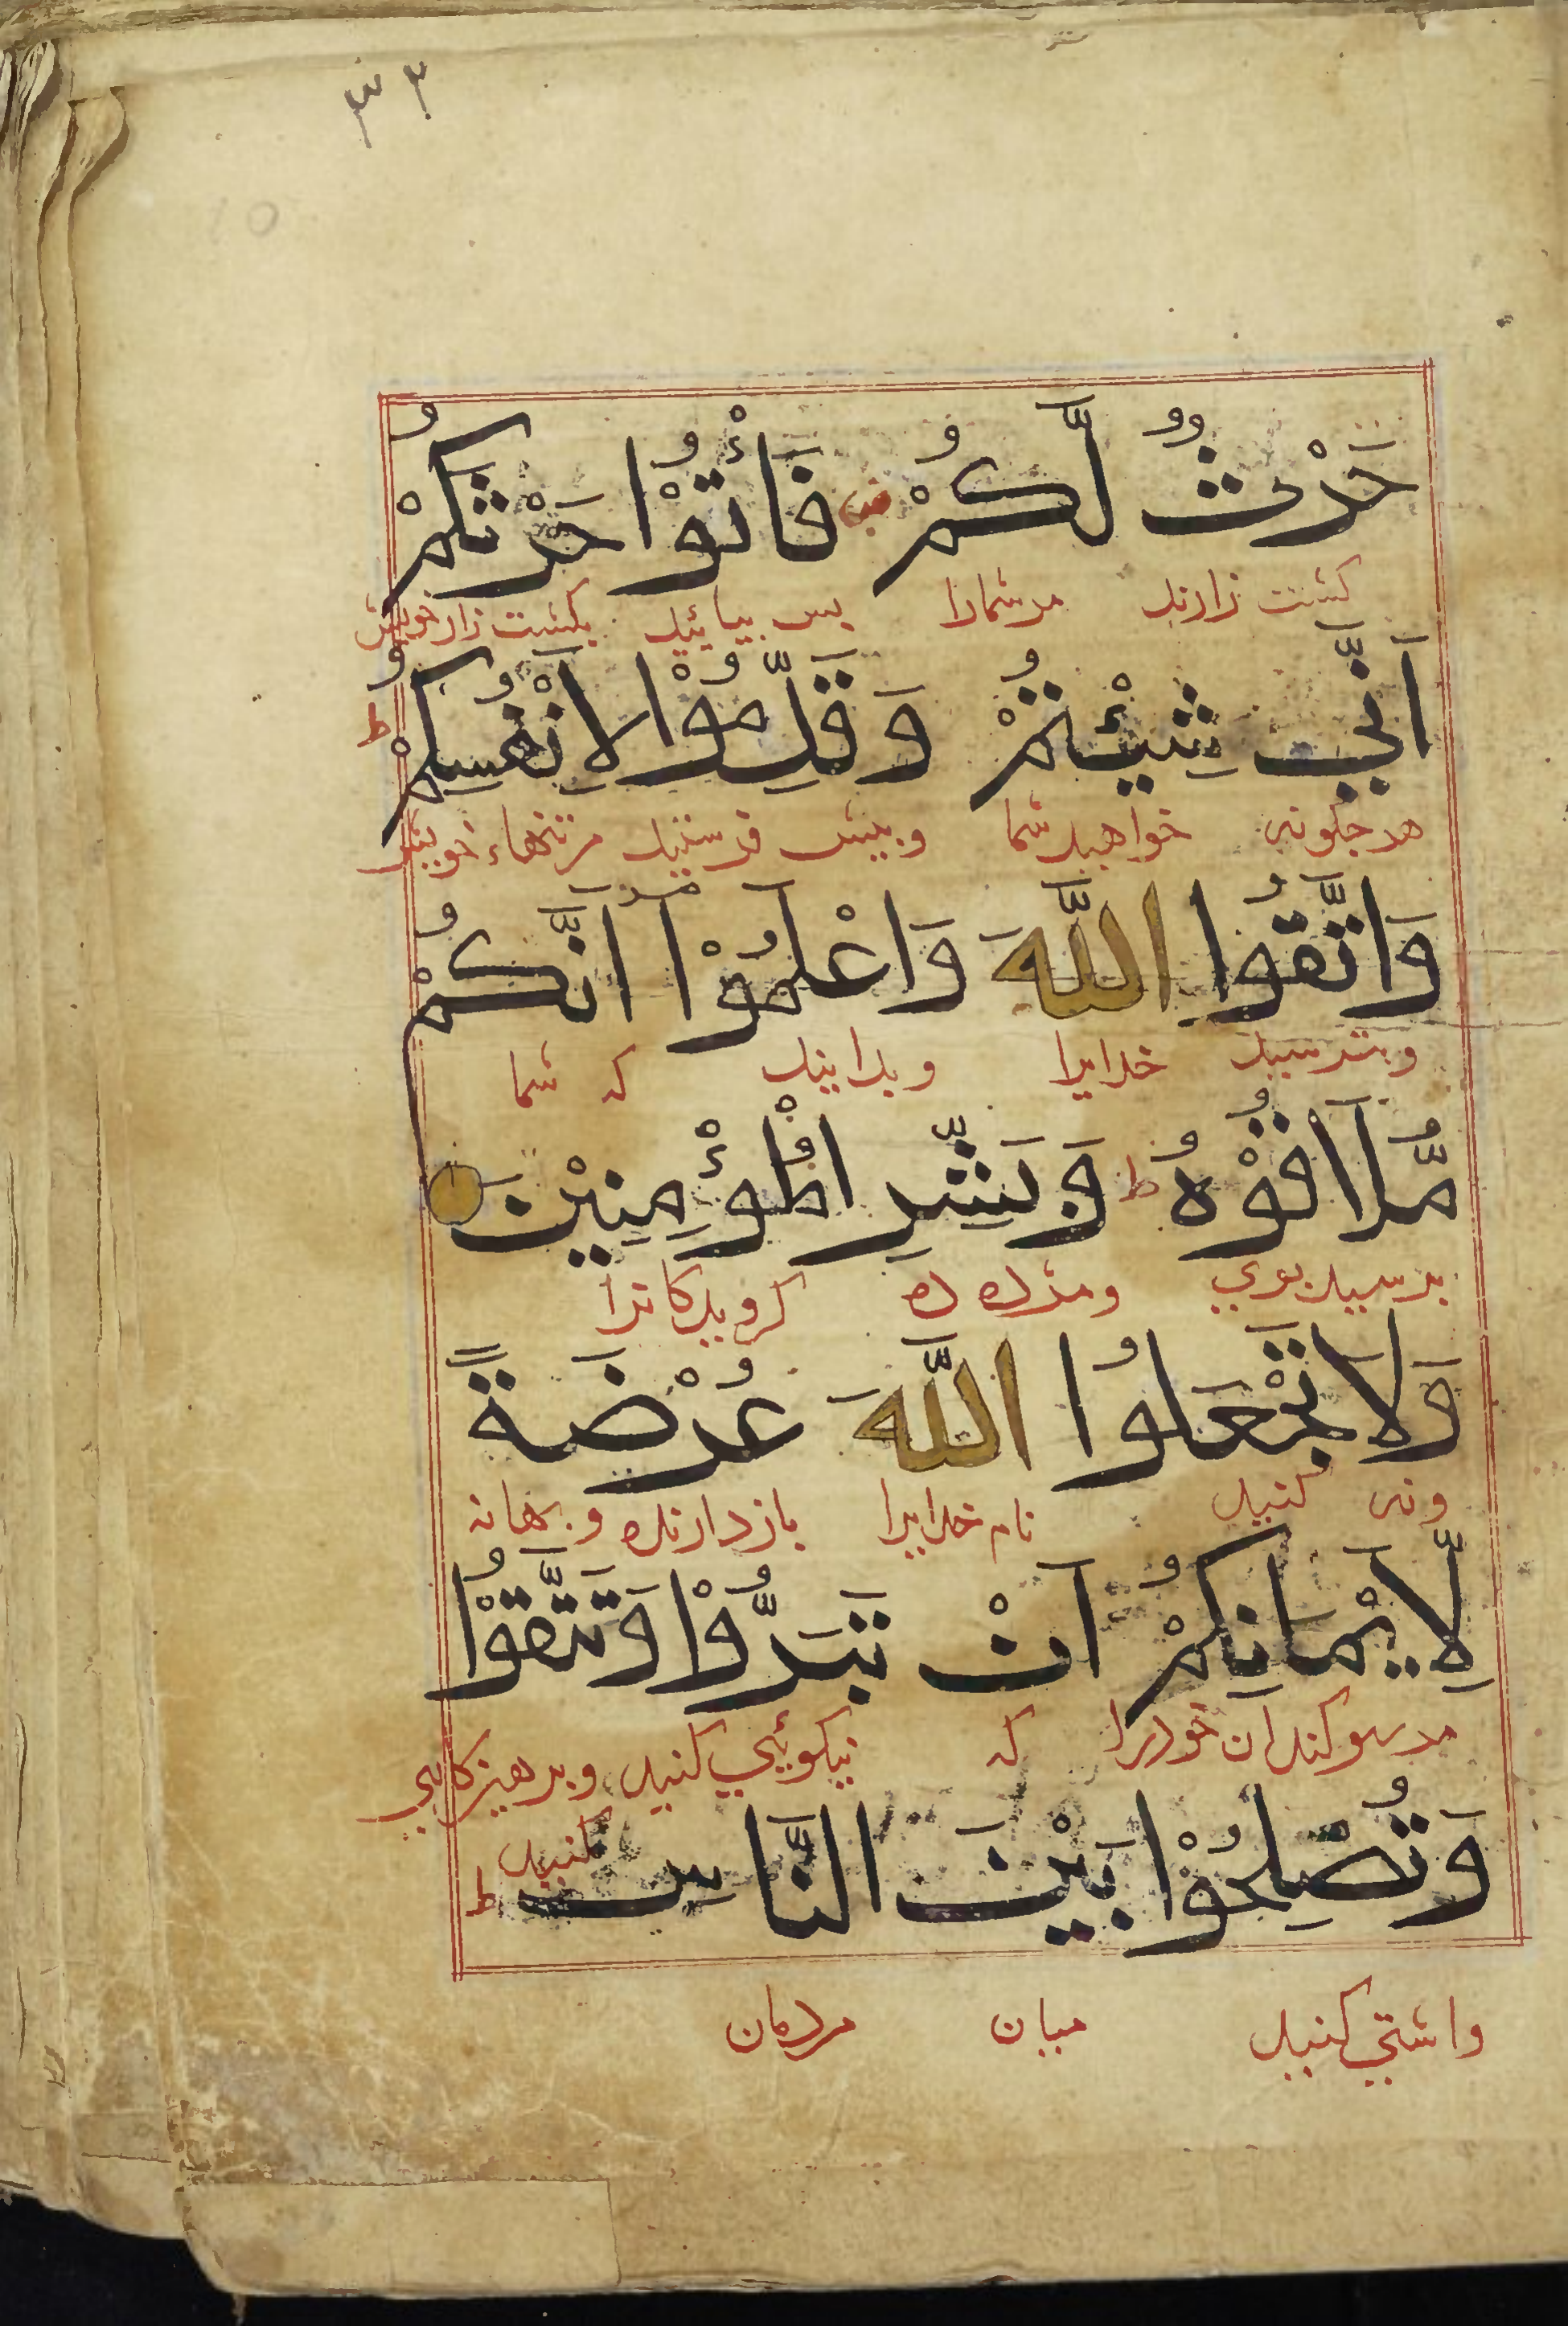 حَرْثٌ لَّكُمْ فَأْتُوْا حَرْثَكُمْ
كشت زارند مر شمارا پس بیائید بكشت زار خویش
اَنّٰی شِئْتُمْ وَقَدِّمُوْا لِاَنْفُسِكُمْ ط
هر چكونه خواهید شما و پیش فرستید مر تنهاء خویش
وَاتَّقُوا اللّٰهَ وَاعْلَمُوْا اَنَّكُمْ
و بترسید خدایرا و بدانید كه شما
مُّلَاقُوْهُ ط وَبَشِّرِ الْمُؤْمِنِیْنَ
و مژده ده كرویدكانرا
وَلَا تَجْعَلُوا اللّٰهَ عُرْضَةً
و نه كنید نام خدایرا بازدارنده و بهانه
لِّاَیْمَانِكُمْ اَنْ تَبَرُّوْا وَتَتَّقُوْا
مر سوكندان خودرا كه نیكوئی كنید و پرهیزكاری
كنید
وَتُصْلِحُوْا بَیْنَ النَّاسِ ط
واشتی كنید میان مردمان